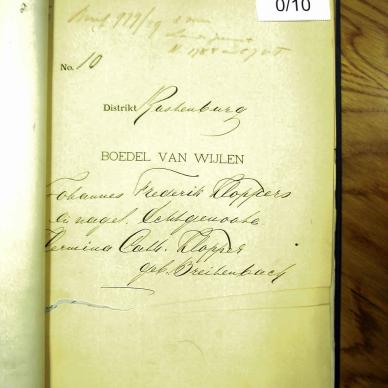 0/10
No. 10
Distrikt Rustenburg
BOEDEL VAN WIJLEN
Johannes Frederik Kloppers
en nagel. Echtgenoote
Hermina Cath. Klopper
geb. Breitenbach